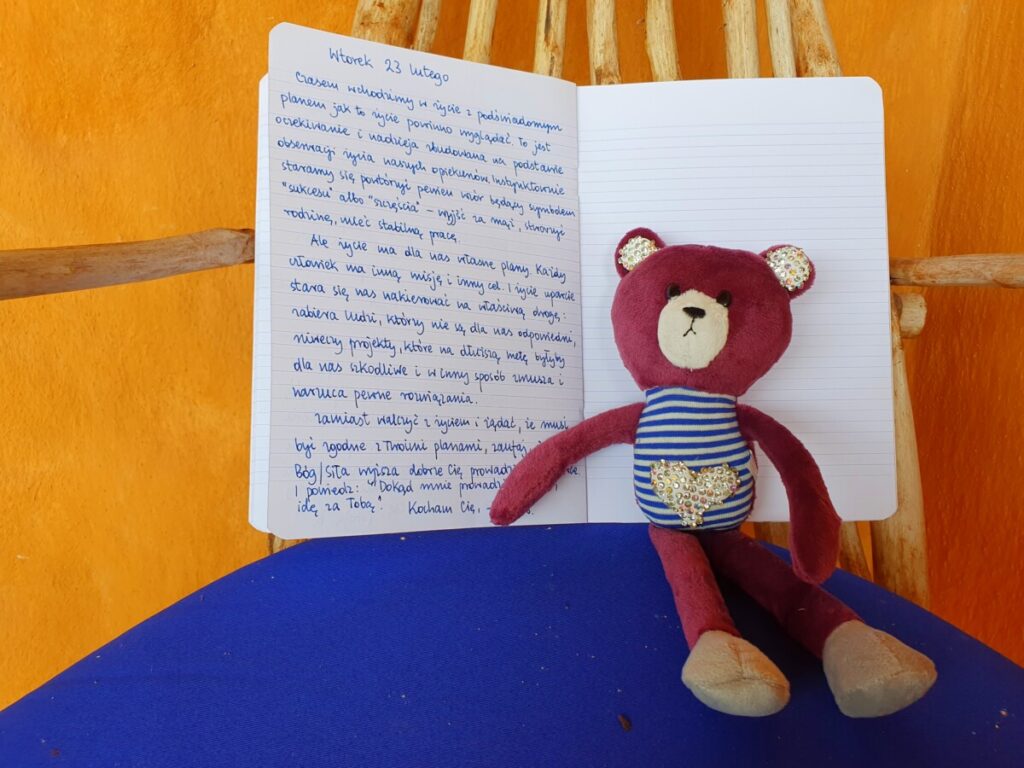 Wtorek 23 lutego
Czasem wchodzimy w życie z podświadomym
planem jak to życie powinno wyglądać. To jest
oczekiwanie i nadzieja zbudowana na podstawie
obserwacji życia naszych opiekunów. Instynktownie
staramy się powtórzyć pewien wzór będący symbolem
"sukcesu" albo "szczęścia" – wyjść za mąż, stworzyć
rodzinę, mieć stabilną pracę.
Ale życie ma dla nas własne plany. Każdy
człowiek ma inną misję i inny cel. I życie uparcie
stara się nas nakierować na właściwą drogę:
zabiera ludzi, którzy nie są dla nas odpowiedni,
niweczy projekty, które na dłuższą metę byłyby
dla nas szkodliwe i w inny sposób zmusza i
narzuca pewne rozwiązania.
Zamiast walczyć z życiem i żądać, że musi
być zgodne z Twoimi planami, zaufaj,
Bóg/Siła wyższa dobrze Cię prowadzi
I powiedz: "Dokąd mnie prowadzi
idę za Tobą." Kocham Cię, –